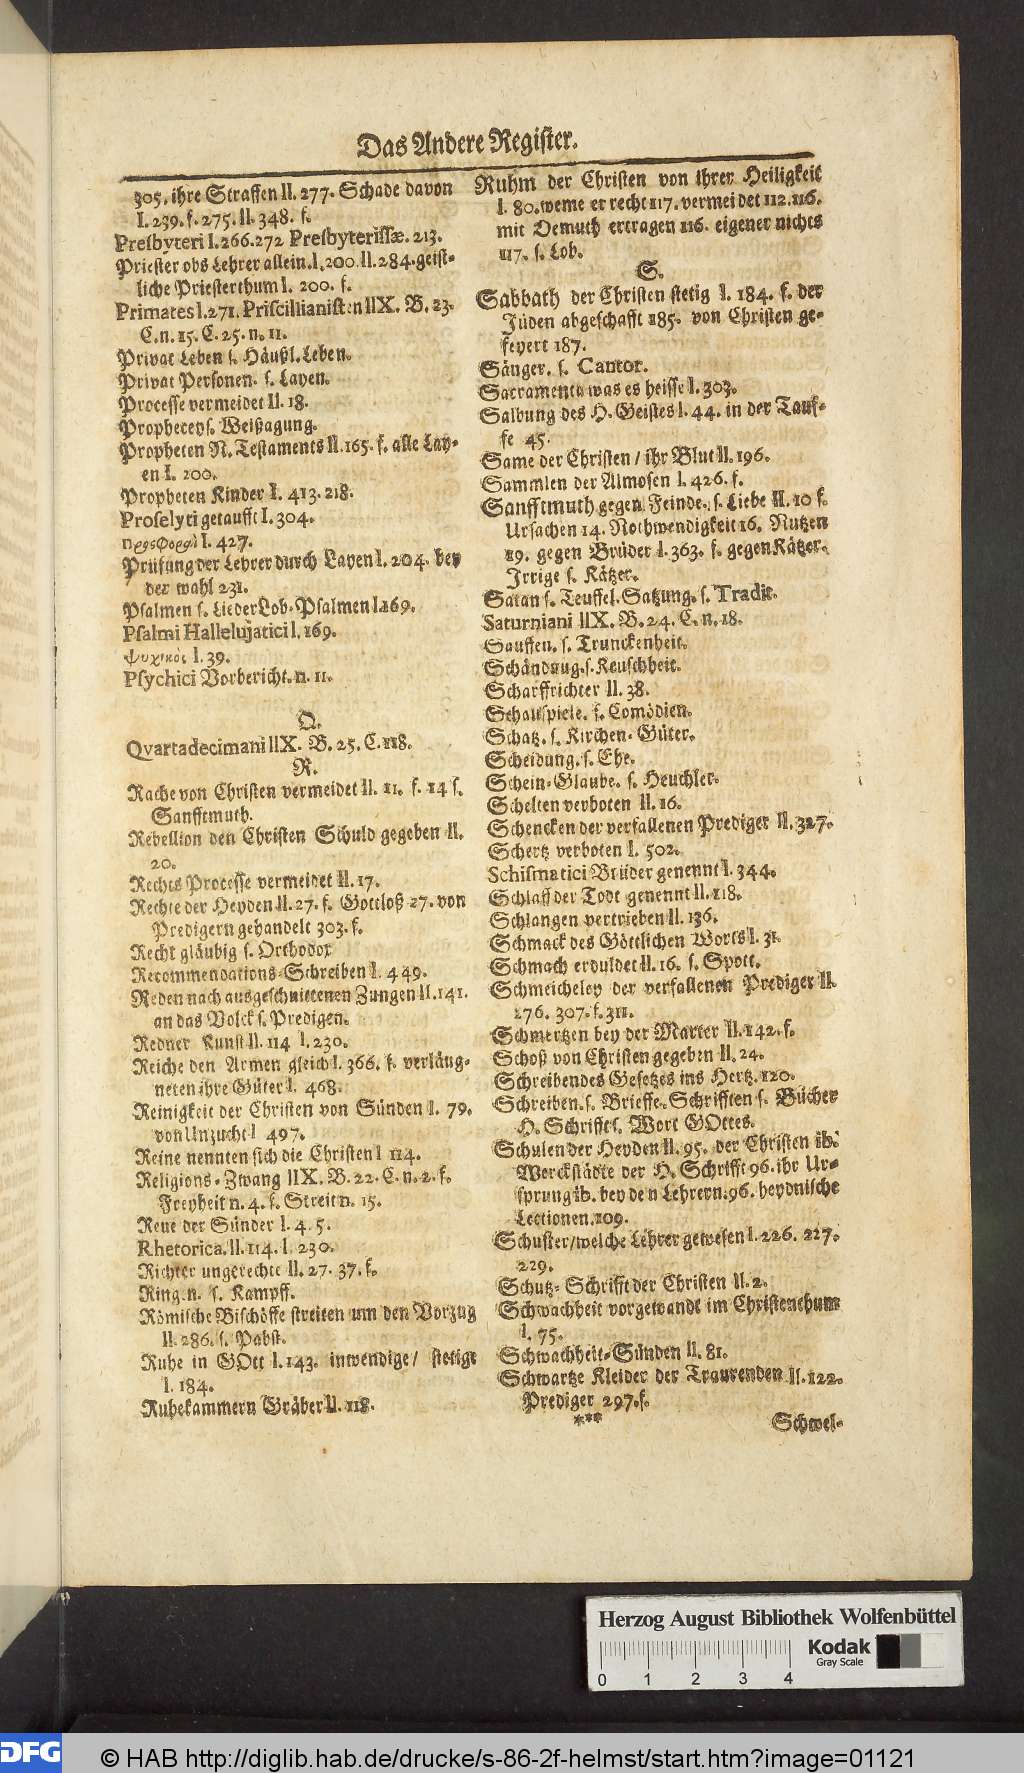 Das Andere Register.
305. ihre Straffen II. 277. Schade davon
I. 239. f. 275. II. 348. f.
Presbyteri I. 266. 272 Presbyterissæ. 213.
Priester obs Lehrer allein. I. 200. II. 284. geist-
liche Priesterthum I. 200. f.
Primates I. 271. Priscillianisten IIX. B. 23.
C. n. 15. C. 25. n. 11.
Privat Leben s. Häußl. Leben.
Privat Personen. s. Layen.
Processe vermeidet II. 18.
Propheceys. Weißagung.
Propheten N. Testaments II. 165. f. alle Lay-
en I. 200.
Propheten Kinder I. 413. 218.
Proselyti getaufft I. 304.
προσφοραὶ I. 427.
Prüfung der Lehrer durch Layen I. 204. bey
der wahl 231.
Psalmen s. Lieder Lob-Psalmen I. 169.
Psalmi Hallelujatici I. 169.
ψυχικὸς I. 39.
Psychici Vorbericht. n. 11.
Q.
Qvartadecimani IIX. B. 25. C. 118.
R.
Rache von Christen vermeidet II. 11. f. 14 s.
Sanfftmuth.
Rebellion den Christen Schuld gegeben II.
20.
Rechts Processe vermeidet II. 17.
Rechte der Heyden II. 27. f. Gottloß 27. von
Predigern gehandelt 303. f.
Recht gläubig s. Orthodox
Recommendations-Schreiben I. 449.
Reden nach ausgeschnittenen Zungen II. 141.
an das Volck s. Predigen.
Redner Kunst II. 114 I. 230.
Reiche den Armen gleich I. 366. f. verläug-
neten ihre Güter I. 468.
Reinigkeit der Christen von Sünden I. 79.
von Unzucht I 497.
Reine nennten sich die Christen I 114.
Religions-Zwang IIX. B. 22. C. n. 2. f.
Freyheit n. 4. f. Streit n. 15.
Reue der Sünder I. 4. 5.
Rhetorica. II. 114. I. 230.
Richter ungerechte II. 27. 37. f.
Ring. n. s. Kampff.
Römische Bischöffe streiten um den Vorzug
II. 286. s. Pabst.
Ruhe in GOtt I. 143. inwendige / stetige
I. 184.
Ruhekammern Gräber II. 118.
Ruhm der Christen von ihrer Heiligkeit
I. 80. weme er recht 117. vermeidet 112. 116.
mit Demuth ertragen 116. eigener nichts
117. s. Lob.
S.
Sabbath der Christen stetig I. 184. f. der
Jüden abgeschafft 185. von Christen ge-
feyert 187.
Sänger. s. Cantor.
Sacramenta was es heisse I. 303.
Salbung des H. Geistes I. 44. in der Tauf-
fe 45.
Same der Christen / ihr Blut II. 196.
Sammlen der Almosen I. 426. f.
Sanfftmuth gegen Feinde. s. Liebe II. 10 f.
Ursachen 14. Nothwendigkeit 16. Nutzen
19. gegen Brüder I. 363. f. gegen Kätzer.
Irrige s. Kätzer.
Satan s. Teuffel. Satzung. s. Tradit.
Saturniani IIX. B. 24. C. n. 18.
Sauffen. s. Trunckenheit.
Schändung. s. Keuschheit.
Scharffrichter II. 38.
Schauspiele. s. Comödien.
Schatz. s. Kirchen-Güter.
Scheidung. s. Ehe.
Schein-Glaube. s. Heuchler.
Schelten verboten II. 16.
Schencken der verfallenen Prediger II. 327.
Schertz verboten I. 502.
Schismatici Brüder genennt I. 344.
Schlaff der Todt genennt II. 118.
Schlangen vertrieben II. 136.
Schmack des Göttlichen Worts I. 31.
Schmach erduldet II. 16. s. Spott.
Schmeicheley der verfallenen Prediger II.
276. 307. f. 311.
Schmertzen bey der Marter II. 142. f.
Schoß von Christen gegeben II. 24.
Schreiben des Gesetzes ins Hertz. 120.
Schreiben. s. Brieffe. Schrifften s. Bücher
H. Schrifft s. Wort GOttes.
Schulen der Heyden II. 95. der Christen ib.
Werckstädte der H. Schrifft 96. ihr Ur-
sprung ib. bey den Lehrern. 96. heydnische
Lectionen. 109.
Schuster / welche Lehrer gewesen I. 226. 227.
229.
Schutz-Schrifft der Christen II. 2.
Schwachheit vorgewandt im Christenthum
I. 75.
Schwachheit-Sünden II. 81.
Schwartze Kleider der Traurenden II. 122.
Prediger 297. f.
***
Schwel-
Herzog August Bibliothek Wolfenbüttel
Kodak
Gray Scale
0 1 2 3 4
DFG
© HAB http://diglib.hab.de/drucke/s-86-2f-helmst/start.htm?image=01121